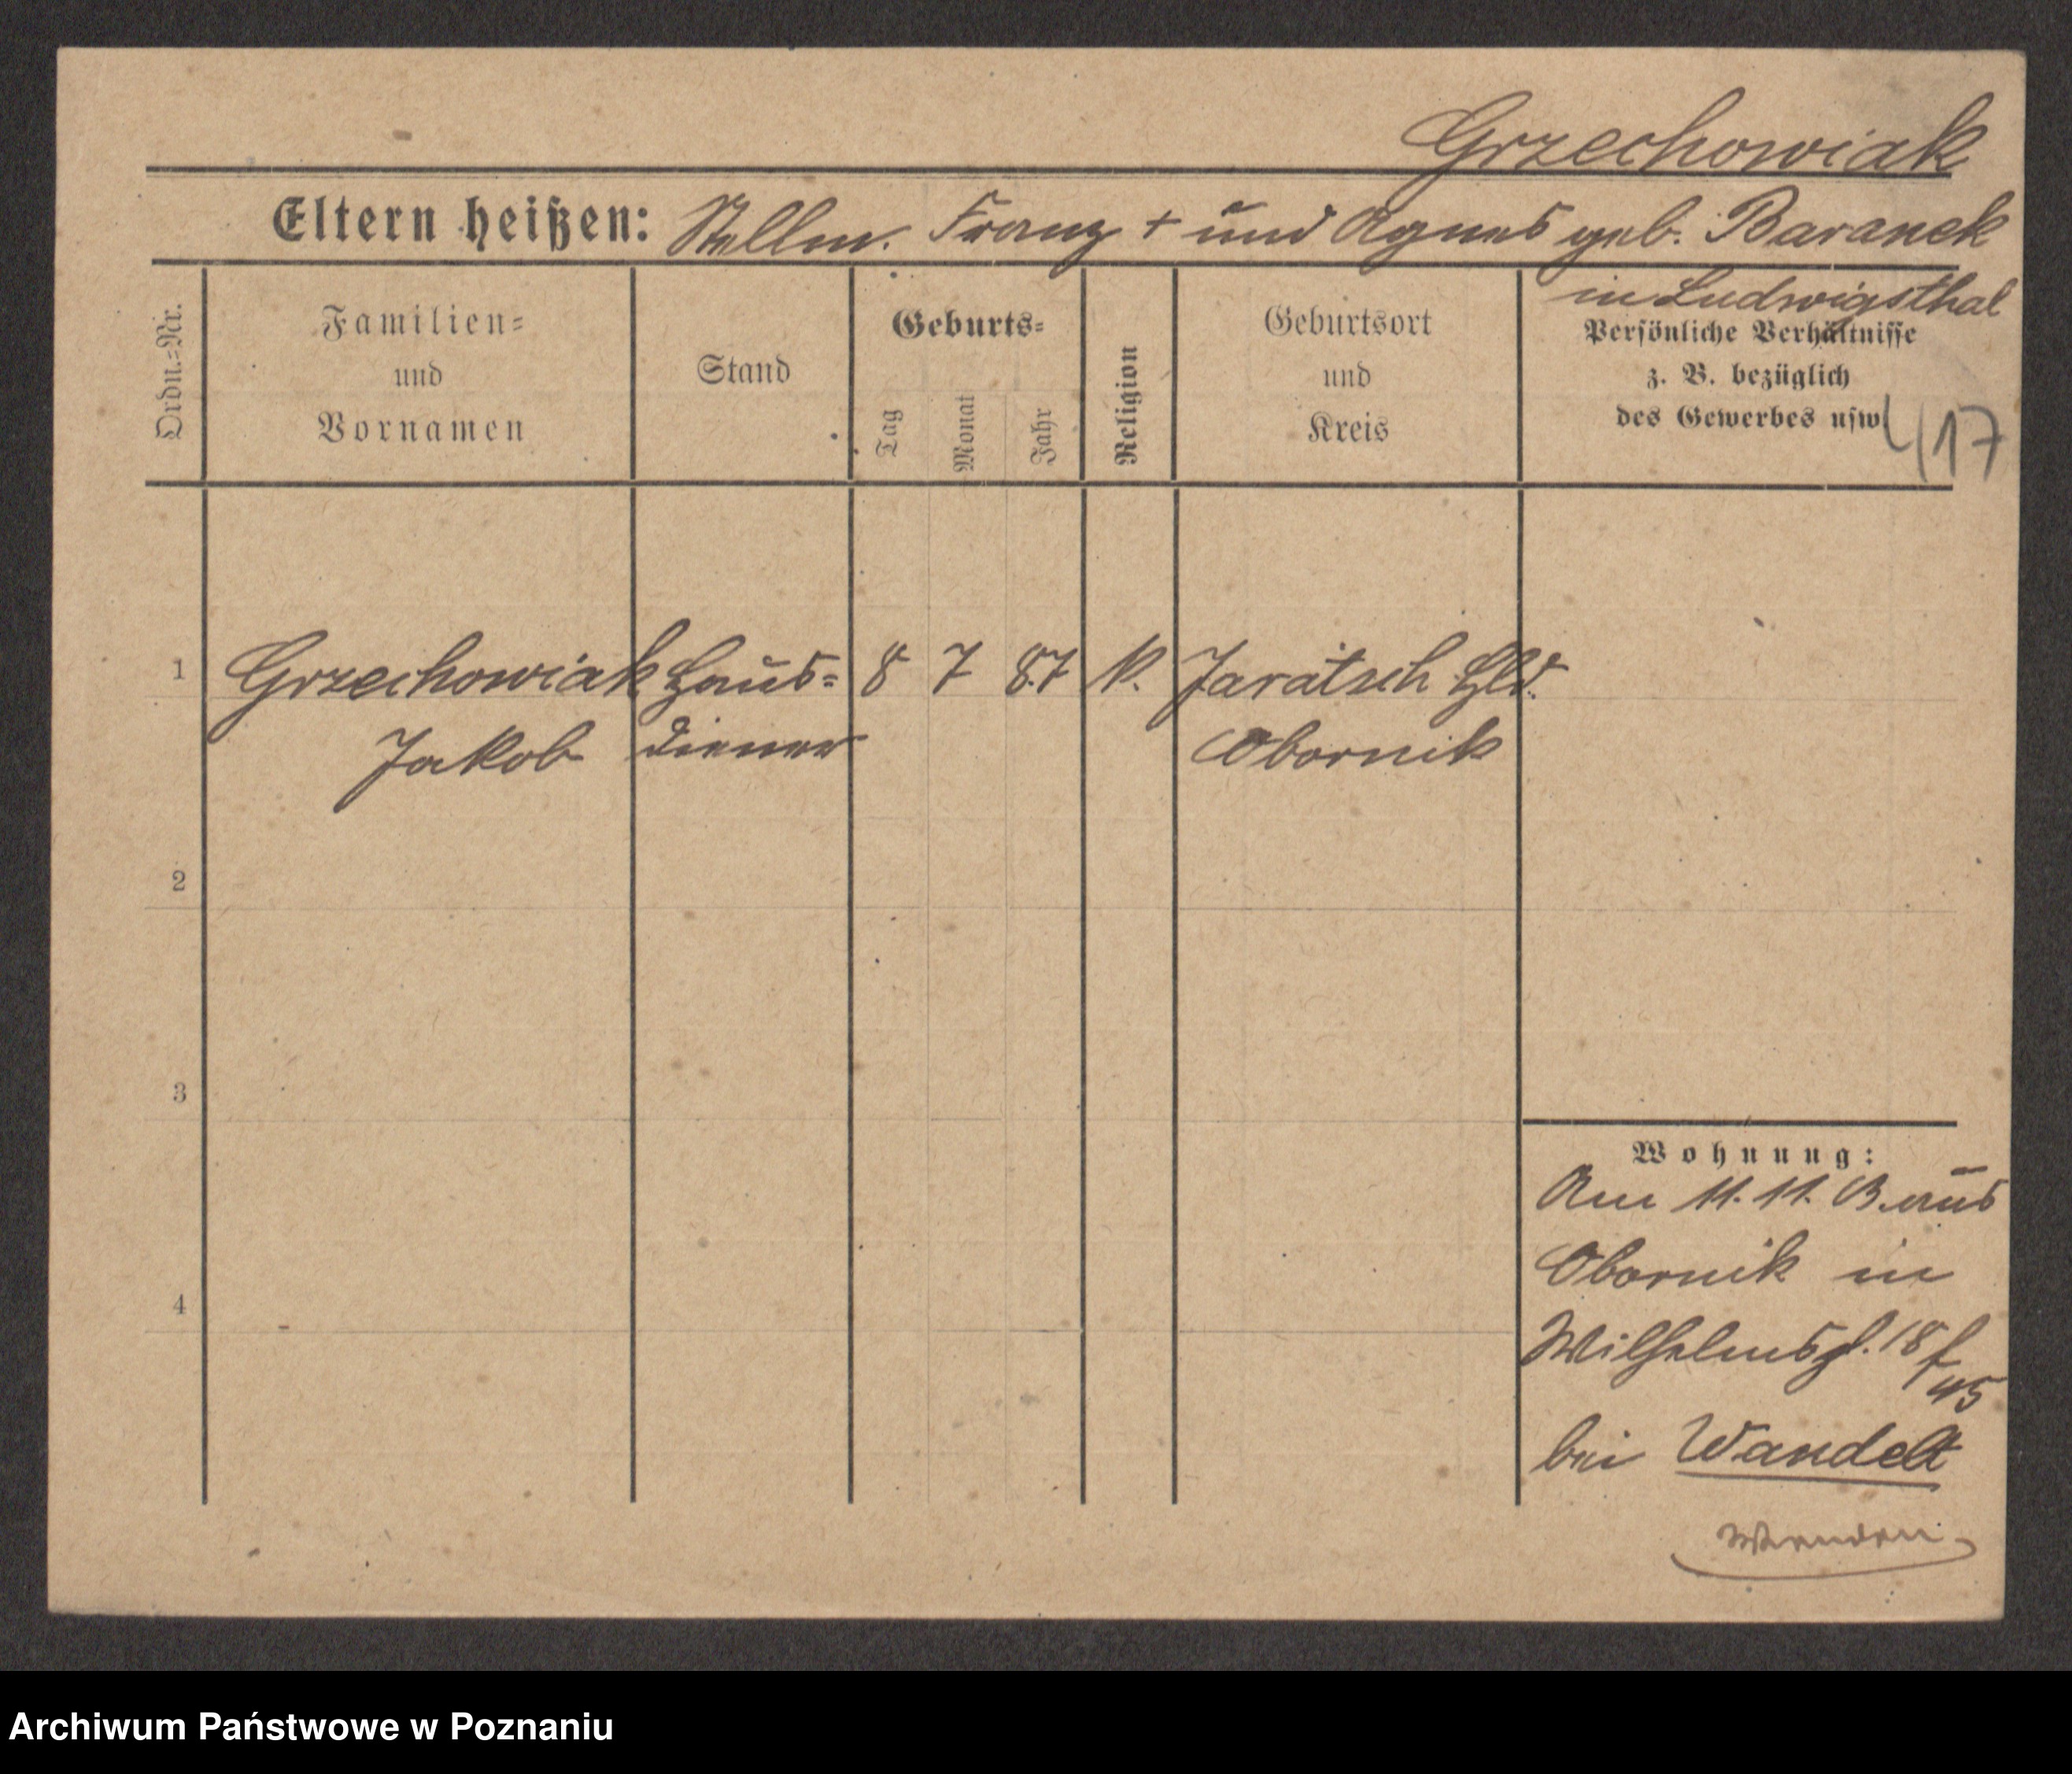 Grzechowiak
Eltern heißen: Stellm. Franz + und Agnes geb. Baranek
in Ludwigsthal
Ordn.=Nr.
Familien=
und
Vornamen
Stand
Geburts=
Tag
Monat
Jahr
Religion
Geburtsort
und
Kreis
Persönliche Verhältnisse
z. B. bezüglich
des Gewerbes usw.
417
1 Grzechowiak Haus= 8 7 87 K. Jaratsch Hld.
Jakob diener Obornik
2
3
4
Wohnung:
Am 11. 11. 13. aus
Obornik in
Wilhelmspl. 18 f
45
bei Wandelt
Archiwum Państwowe w Poznaniu